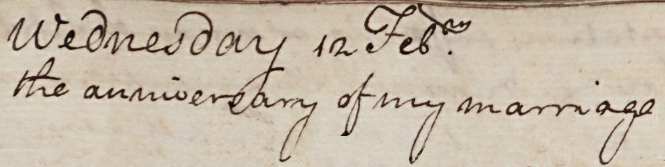 Wednesday 12 Feb.ry
the anniversary of my marriage